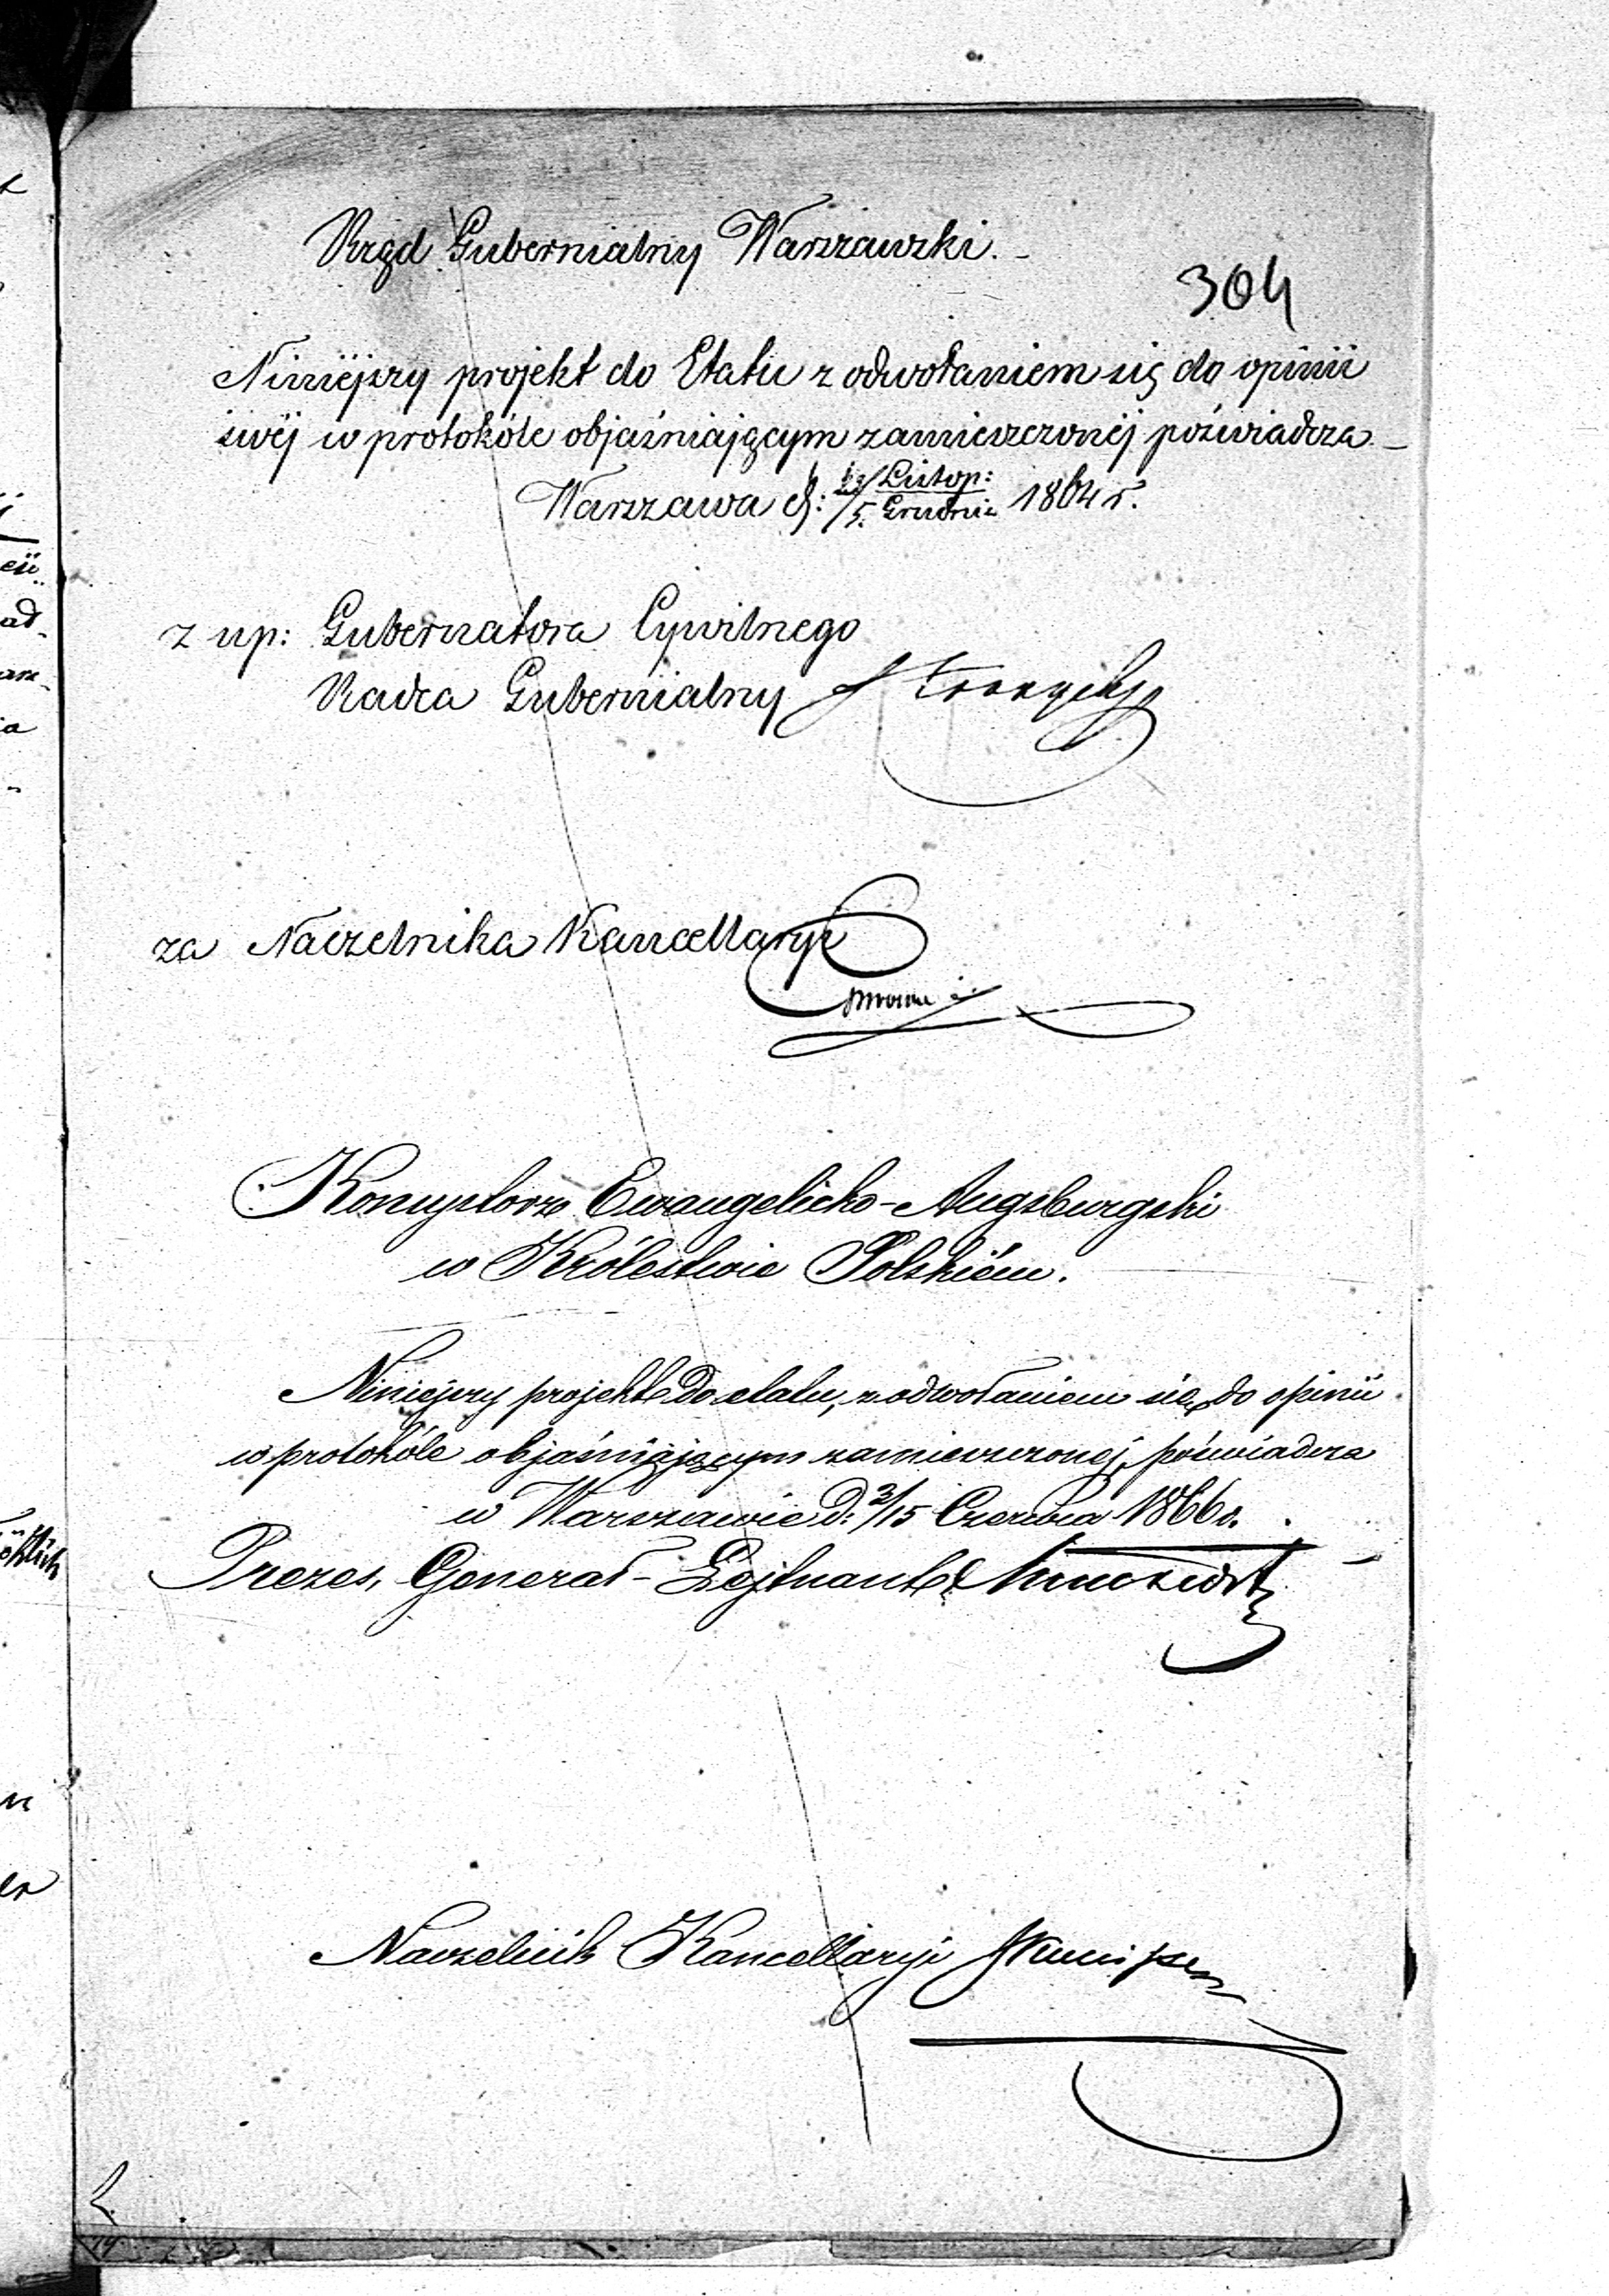 Rząd Gubernialny Warszawski.
304
Niniéjszy projekt do Etatu z odwołaniem się do opinii
swéj w protokóle objaśniającym zamieszczonéj poświadcza.
Warszawa d: 23/5 Listop: Grudnia 1864 r.
z up: Gubernatora Cywilnego
Radca Gubernialny
za Naczelnika Kancellaryi
Konsystorz Ewangelicko-Augsburgski
w Królestwie Polskiém.
Niniejszy projekt do etatu, z odwołaniem się do opinii
w protokóle objaśniającym zamieszczonej, poświadcza
w Warszawie d: 3/15 Czerwca 1866 r.
Prezes, Generał-Lejtnant
Naczelnik Kancellaryi